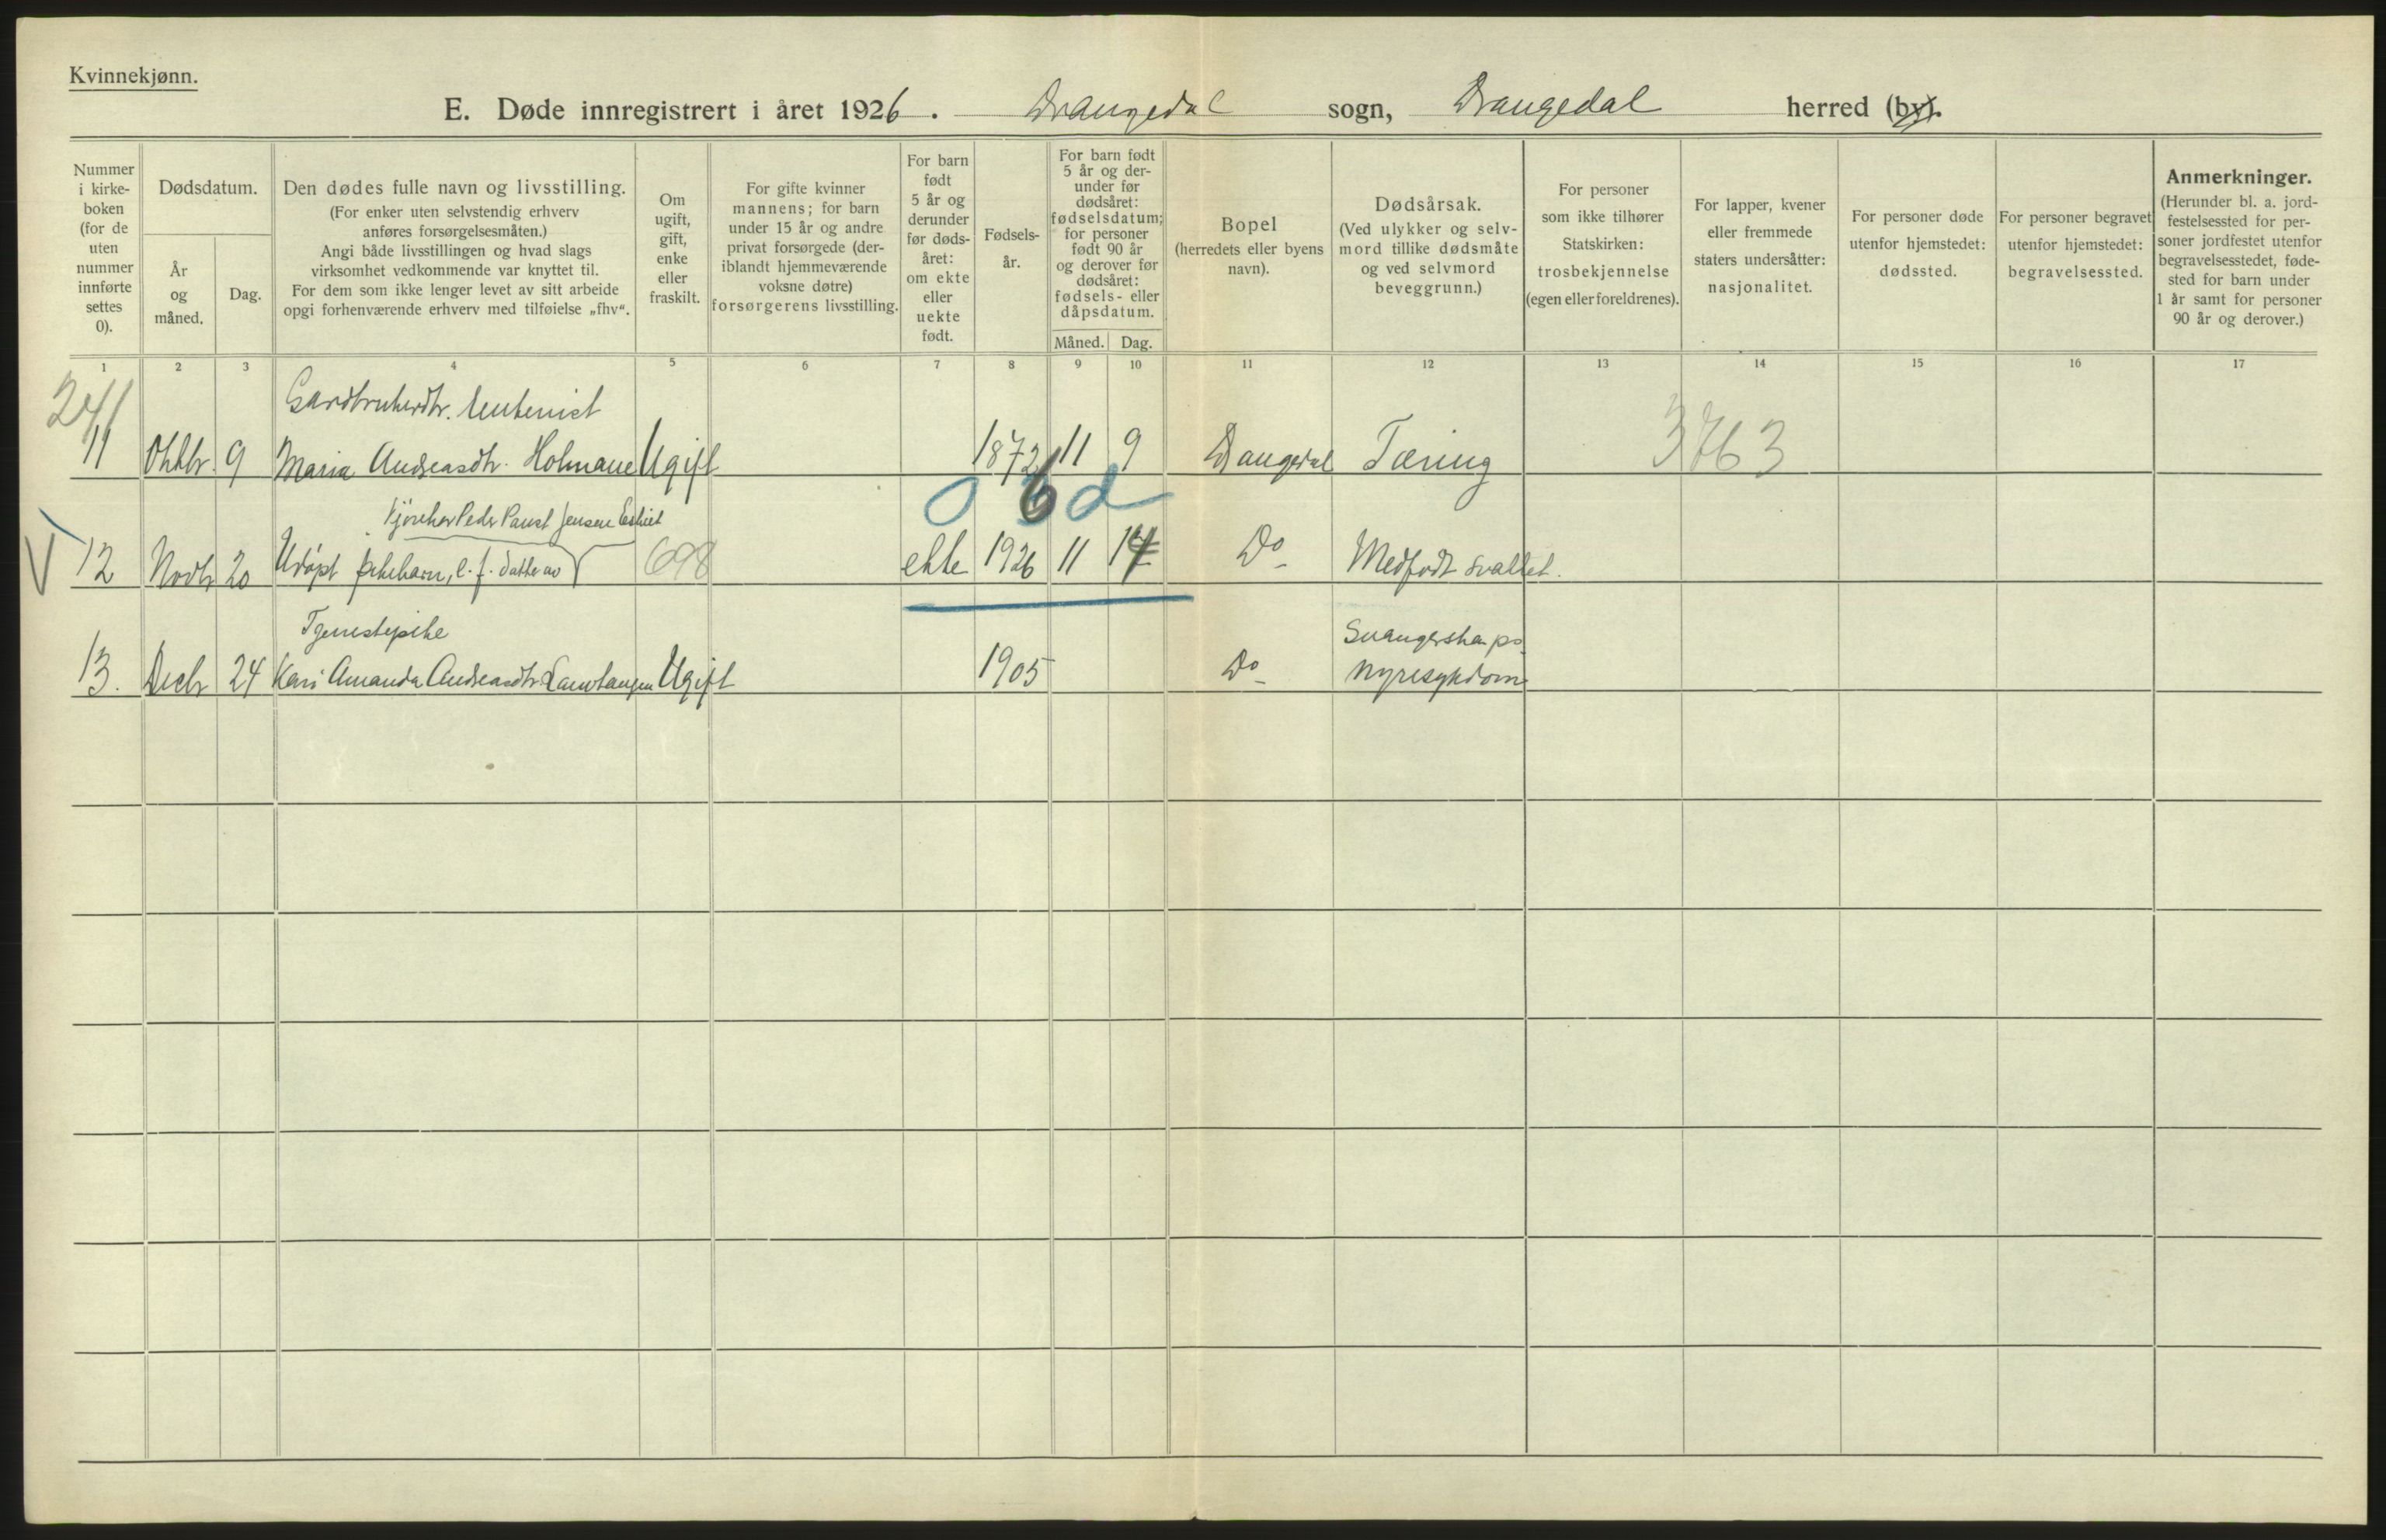 Kvinnekjønn.
E. Døde innregistrert i året 1926. Drangedal sogn, Drangedal herred (by).
Nummer i kirkeboken (for de uten nummer innførte settes 0).
Dødsdatum.
År og måned.
Dag.
Den dødes fulle navn og livsstilling.
(For enker uten selvstendig erhverv anføres forsørgelsesmåten.)
Angi både livsstillingen og hvad slags virksomhet vedkommende var knyttet til.
For dem som ikke lenger levet av sitt arbeide opgi forhenværende erhverv med tilføielse „fhv“.
Om ugift, gift, enke eller fraskilt.
For gifte kvinner mannens; for barn under 15 år og andre privat forsørgede (deriblandt hjemmeværende voksne døtre) forsørgerens livsstilling.
For barn født 5 år og derunder før dødsåret: om ekte eller uekte født.
Fødselsår.
For barn født 5 år og derunder før dødsåret: fødselsdatum; for personer født 90 år og derover før dødsåret: fødsels- eller dåpsdatum.
Måned.
Dag.
Bopel
(herredets eller byens navn).
Dødsårsak.
(Ved ulykker og selvmord tillike dødsmåte og ved selvmord beveggrunn.)
For personer som ikke tilhører Statskirken: trosbekjennelse (egen eller foreldrenes).
For lapper, kvener eller fremmede staters undersåtter: nasjonalitet.
For personer døde utenfor hjemstedet: dødssted.
For personer begravet utenfor hjemstedet: begravelsessted.
Anmerkninger.
(Herunder bl. a. jordfestelsessted for personer jordfestet utenfor begravelsesstedet, fødested for barn under 1 år samt for personer 90 år og derover.)
1 2 3 4 5 6 7 8 9 10 11 12 13 14 15 16 17
241
11 Oktbr. 9 Maria Andreasdtr. Ugift 1872 11 9 Drangedal Tæring 3763
0 6 d
Peder Jensen
12 Novbr 20 Udøpt pikebarn, l. f. datter av 698 ekte 1926 11 Do Medfødt svakhet.
Tjenestepike Svangerskaps
13. Decbr 24 Kari Amanda Andreasdtr. Ugift 1905 Do nyresykdom